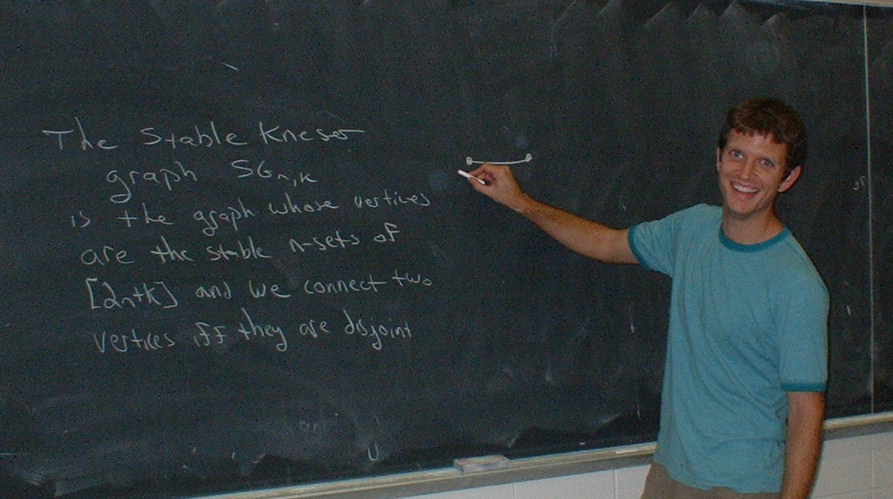 The Stable Kneser
graph SG_{n,k}
is the graph whose vertices
are the stable n-sets of
[2n+k] and we connect two
vertices iff they are disjoint